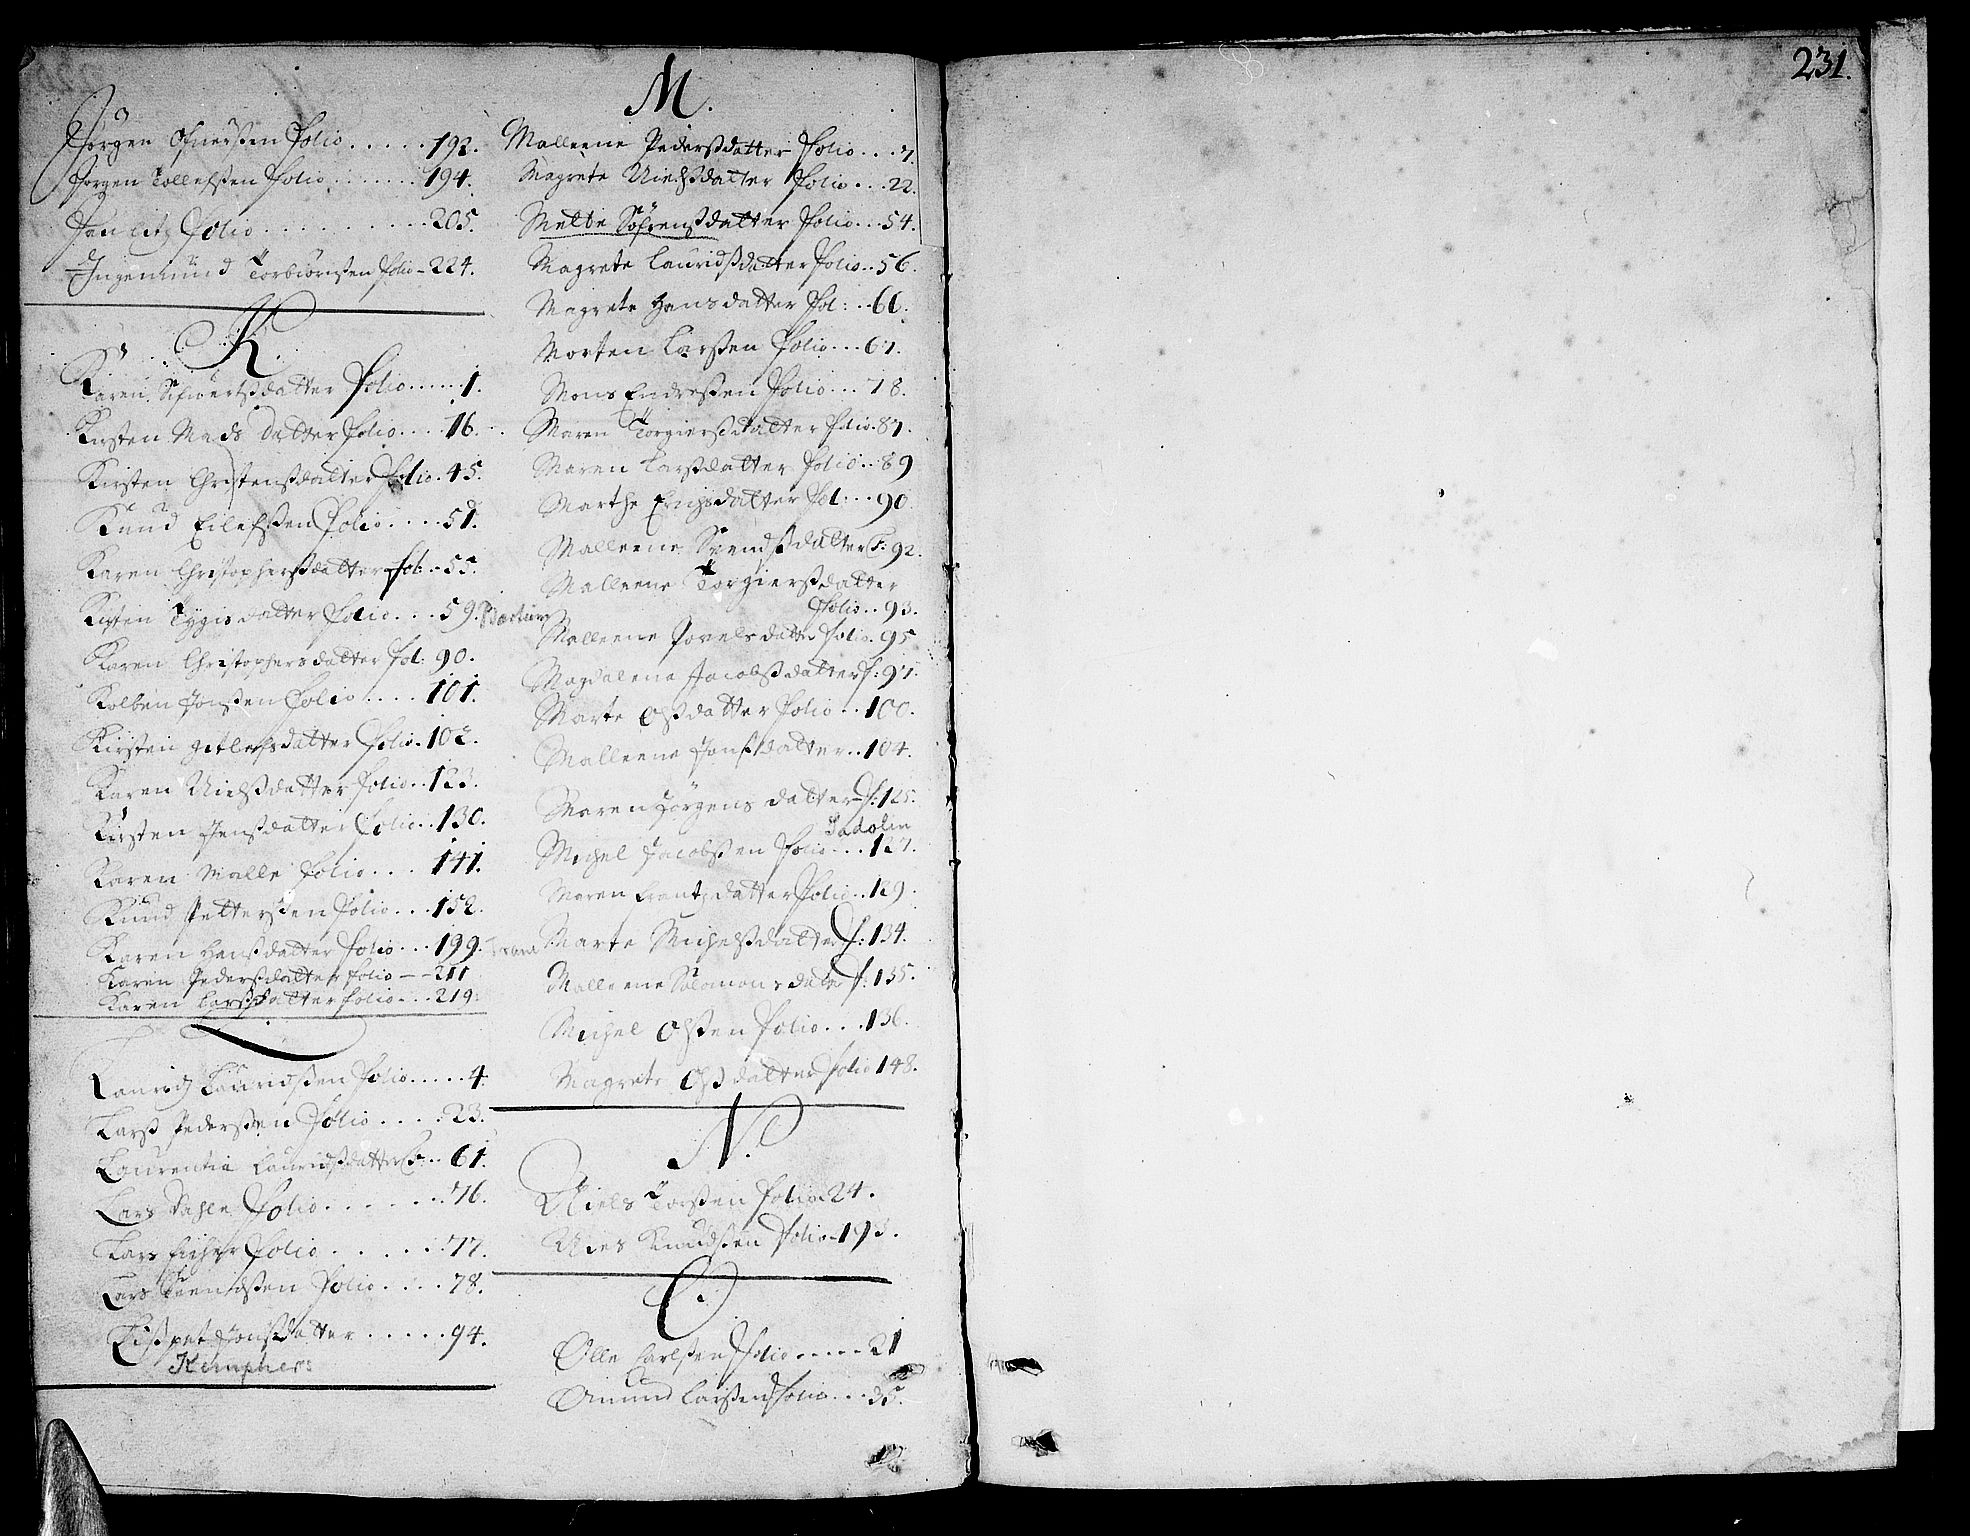 Jörgen Ofuerßen Folio . . . . . 192.
Jörgen Tollefsßen Folio . . . . . . . 194.
Jan Litz Folio . . . . . . . . . . 205.
Ingemund Torbiörnsßen Folio - 224.
K.
Karen Sifwertßdatter Folio . . . . . . 1.
Kirsten Mads datter Folio . . . . 16.
Kirsten Christensßdatter Folio . 45.
Knud Eilefsßen Folio . . . . . 51.
Karen Christophersßdatter Fol: . . 55.
Kirsten Tygis datter Folio . . . . 59.
Karen Christophersdatter Fol: 90.
Kolben Jonsßen Folio . . . . . 101.
Kirsten Gitlefsdatter Folio . 102.
Karen Nielsßdatter Folio . . 123.
Kirsten Jensßdatter Folio . . 130.
Karen Malle Folio . . . . 141.
Knud Pettersßen Folio . . . 152.
Karen Hansßdatter Folio . . . 199.
Karen Pedersßdatter Folio - - - 211
Karen Larsßdatter Folio . . . 219.
L
Lauridz Lauridsßen Folio . . . . . 4.
Larß Pedersßen Folio . . . . : 23.
Laurentia Lauridsßdatter F: . . 61.
Lars Dahle Folio . . . . . . . 76.
Lars Folio . . . . . . . 77.
Lars Svendsßen Folio . . . . . 78.
Lißpet Jonsßdatter . . . . . 94.
Kemphers
M.
Malleene Pedersßdatter Folio . . . 7.
Magrete Nielsßdatter Folio . . . 22.
Mette Söfrensßdatter Folio . . . 54.
Magrete Lauridsßdatter Folio . . 56.
Magrete Hansdatter Fol: . . 66.
Morten Larsßen Folio . . . 67.
Mons Endresßen Folio . . . 78.
Maren Torgiersßdatter Folio . 87.
Maren Larsßdatter Folio . . 89
Marthe Erichsdatter Fol: . . . 90.
Malleene Svendsßdatter F: 92.
Malleene Torgiersßdatter
Folio . . 93.
Malleene Povelsdatter Folio . 95
Magdalena Jacobsßdatter f: 97.
Marte Olsßdatter Folio . . 100.
Malleene Jonsßdatter . . 104.
Maren Jörgens datter f: 125.
Sadolin
Michel Jacobsßen Folio . . . 127.
Maren Frantz datter Folio . . 129.
Marte Michelsßdatter f: 134.
Malleene Salomonsdatter f: 135.
Michel Olsßen Folio . . . 136.
Magrete Olsßdatter Folio 148.
N.
Niels Torsßen Folio . 24.
Niels Knudsßen Folio . 193.
O.
Olle Carlsßen Folio . . . . . 21
Omund Larsßen Folio . . . 35.
231.